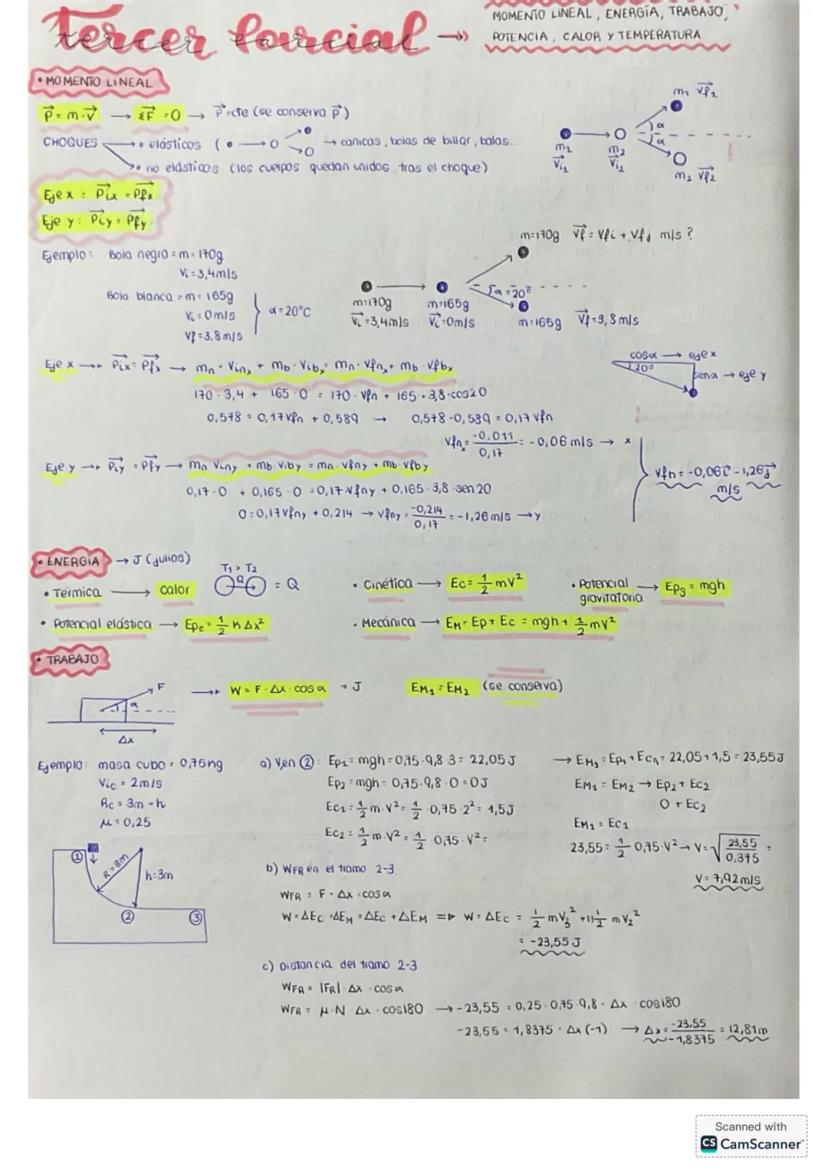 Tercer Parcial → MOMENTO LINEAL, ENERGÍA, TRABAJO,
POTENCIA, CALOR Y TEMPERATURA
• MOMENTO LINEAL
P = m·V → ΣF = 0 → P = cte (se conserva P)
CHOQUES → elásticos ( → canicas, bolas de billar, balas...
→ no elásticos (los cuerpos quedan unidos tras el choque)
m1 Vf1
α
α
m1 Vi1
m2 Vi2
m2 Vf2
Eje x : Pix = Pfx
Eje y : Piy = Pfy
Ejemplo: Bola negra = m = 170g
Vi = 3,4m/s
Bola blanca = m = 165g
Vi = 0m/s
Vf = 3,8m/s
α = 20°C
m=170g Vf = Vfi + Vfj m/s ?
α = 20°
m=170g
Vi=3,4m/s
m=165g
Vi=0m/s
m=165g Vf=3,8m/s
Eje x → Pix = Pfx → mn · Vinx + mb · Vibx = mn · Vfnx + mb · Vfbx
170 · 3,4 + 165 · 0 = 170 · Vfn + 165 · 3,8 · cos20
0,578 = 0,17Vfn + 0,589 → 0,578 - 0,589 = 0,17 Vfn
Vfn = -0,011/0,17 = -0,06 m/s → x
cosα → eje x
20°
senα → eje y
Eje y → Piy = Pfy → mn · Viny + mb · Viby = mn · Vfny + mb · Vfby
0,17 · 0 + 0,165 · 0 = 0,17 · Vfny + 0,165 · 3,8 · sen20
0 = 0,17Vfny + 0,214 → Vfny = -0,214/0,17 = -1,26 m/s → y
Vfn = -0,06i - 1,26j
m/s
• ENERGÍA → J (julios)
• Térmica → calor
T1 > T2
Q
= Q
• Cinética → Ec = 1/2 mV²
• Potencial gravitatoria → Epg = mgh
• Potencial elástica → Epe = 1/2 K Δx²
• Mecánica → EM = Ep + Ec = mgh + 1/2 mV²
• TRABAJO
F
α
Δx
→ W = F · Δx · cos α = J
EM1 = EM2 (se conserva)
Ejemplo: masa cubo = 0,75kg
Vic = 2m/s
Rc = 3m = h
μ = 0,25
① R=3m h=3m
② ③
a) V en ② : Ep1 = mgh = 0,75 · 9,8 · 3 = 22,05 J
Ep2 = mgh = 0,75 · 9,8 · 0 = 0J
Ec1 = 1/2 m · V² = 1/2 · 0,75 · 2² = 1,5J
Ec2 = 1/2 m · V² = 1/2 0,75 · V² =
→ EM1 = Ep1 + Ec1 = 22,05 + 1,5 = 23,55J
EM1 = EM2 → Ep2 + Ec2
0 + Ec2
EM1 = Ec1
23,55 = 1/2 0,75 · V² → V = √23,55/0,375 =
V = 7,92 m/s
b) WFR en el tramo 2-3
WFR = F · Δx · cos α
W = ΔEc = ΔEM = ΔEc + ΔEM ⇒ W = ΔEc = 1/2 mV3² + (-) 1/2 mV2²
= -23,55 J
c) Distancia del tramo 2-3
WFR = |FR| · Δx · cos α
WFR = μ · N · Δx · cos180 → -23,55 = 0,25 · 0,75 · 9,8 · Δx · cos180
-23,55 = 1,8375 · Δx (-1) → Δx = -23,55/-1,8375 = 12,81m
Scanned with
CS CamScanner